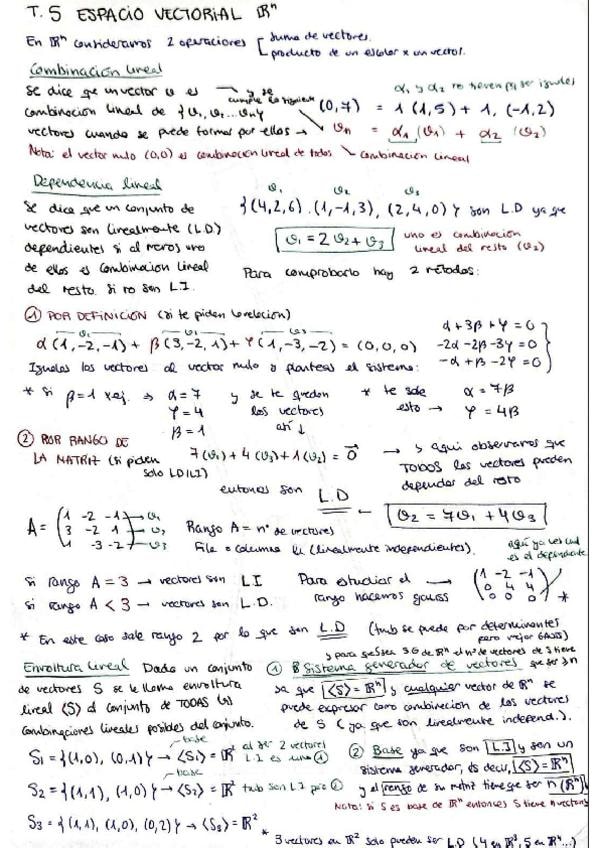 T.5 ESPACIO VECTORIAL ℝⁿ
En ℝⁿ consideramos 2 operaciones [ suma de vectores.
producto de un escalar x un vector.
Combinación lineal
Se dice que un vector v es
combinación lineal de {v₁, v₂...vₙ}
vectores cuando se puede formar por ellos →
y se cumple lo siguiente
α₁ y α₂ no tienen pq ser iguales
(0,7) = 1 (1,5) + 1, (-1,2)
vₙ = α₁ (v₁) + α₂ (v₂)
Nota: el vector nulo (0,0) es combinación lineal de todos
combinación lineal
Dependencia lineal
Se dice que un conjunto de
vectores son linealmente (L.D)
dependientes si al menos uno
de ellos es combinacion lineal
del resto. si no son L.I.
v₁ v₂ v₃
{(4,2,6).(1,-1,3), (2,4,0)} son L.D ya que
v₁ = 2v₂ + v₃
uno es combinación
lineal del resto (v₂)
Para comprobarlo hay 2 métodos:
① POR DEFINICIÓN (si te piden la relación)
v₁ v₂ v₃
α(1,-2,-1) + β(3,-2,1) + γ(1,-3,-2) = (0,0,0)
α + 3β + γ = 0
-2α - 2β - 3γ = 0
-α + β - 2γ = 0
Igualas los vectores al vector nulo y planteas el sistema:
* Si β=1 xej. ⇒ α = 7
γ = 4
β = 1
y se te quedan
los vectores
así ↓
* te sale
esto →
α = 7β
γ = 4β
② POR RANGO DE
LA MATRIZ (si piden
solo LD/LI)
7(v₁) + 4(v₃) + 1(v₂) = 0
→ y aqui observamos que
TODOS los vectores pueden
depender del resto
entonces son L.D
← v₂ = 7v₁ + 4v₃
A = (1 -2 -1) → v₁
(3 -2 1) → v₂
(1 -3 -2) → v₃
Rango A = nº de vectores
fila o columna li (linealmente independientes).
aquí ya ves cual
es el dependiente
Si rango A = 3 → vectores son LI
si rango A < 3 → vectores son L.D.
Para estudiar el →
rango hacemos gauss
(1 -2 -1)
(0 4 4)
(0 0 0) *
* En este caso sale rango 2 por lo que son L.D (tmb se puede por determinantes
pero mejor GAUSS)
Envoltura lineal Dado un conjunto
de vectores S se le llama envoltura
lineal ⟨S⟩ al conjunto de TODAS las
combinaciones lineales posibles del conjunto.
y para que sea S.G de ℝⁿ el nº de vectores de S tiene
que ser ≥n
① Sistema generador de vectores
ya que ⟨S⟩ = ℝⁿ y cualquier vector de ℝⁿ se
puede expresar como combinación de los vectores
de S (ya que son linealmente independ.).
base
S₁ = {(1,0), (0,1)} → ⟨S₁⟩ = ℝ² al ser 2 vectores
L.I es una ①
base
S₂ = {(1,1), (1,0)} → ⟨S₂⟩ = ℝ² tmb son L.I
S₃ = {(1,1), (1,0), (0,2)} → ⟨S₃⟩ = ℝ²
② Base ya que son L.I y son un
sistema generador, es decir, ⟨S⟩ = ℝⁿ
y el rango de su matriz tiene que ser n (ℝⁿ).
Nota: si S es base de ℝⁿ entonces S tiene n vectores
* 3 vectores en ℝ² solo pueden ser L.D (4 en ℝ³, 5 en ℝ⁴...)